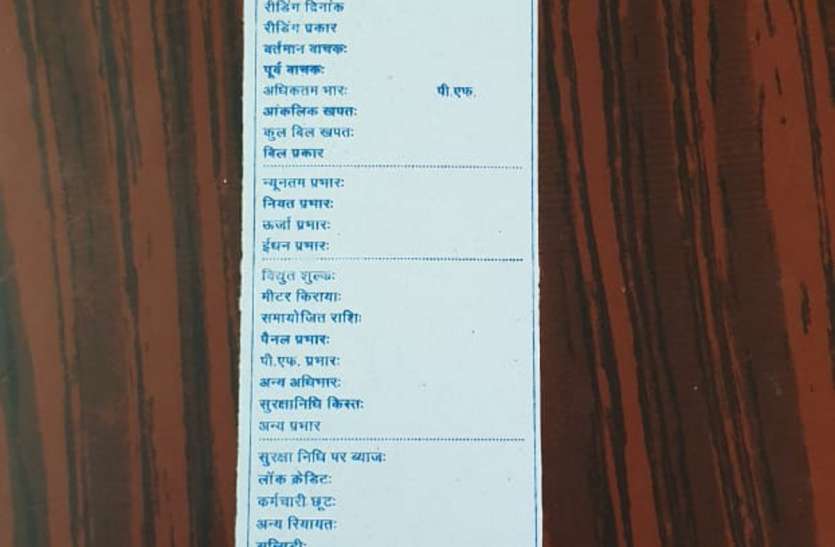 रीडिंग दिनांक
रीडिंग प्रकार
वर्तमान वाचकः
पूर्व वाचकः
अधिकतम भारः पी.एफ.
आंकलिक खपतः
कुल बिल खपतः
बिल प्रकार
न्यूनतम प्रभारः
नियत प्रभारः
ऊर्जा प्रभारः
ईंधन प्रभारः
विद्युत शुल्कः
मीटर किरायाः
समायोजित राशिः
पैनल प्रभारः
पी.एफ. प्रभारः
अन्य अधिभारः
सुरक्षानिधि किस्तः
अन्य प्रभार
सुरक्षा निधि पर ब्याजः
लॉक क्रेडिटः
कर्मचारी छूटः
अन्य रियायतः